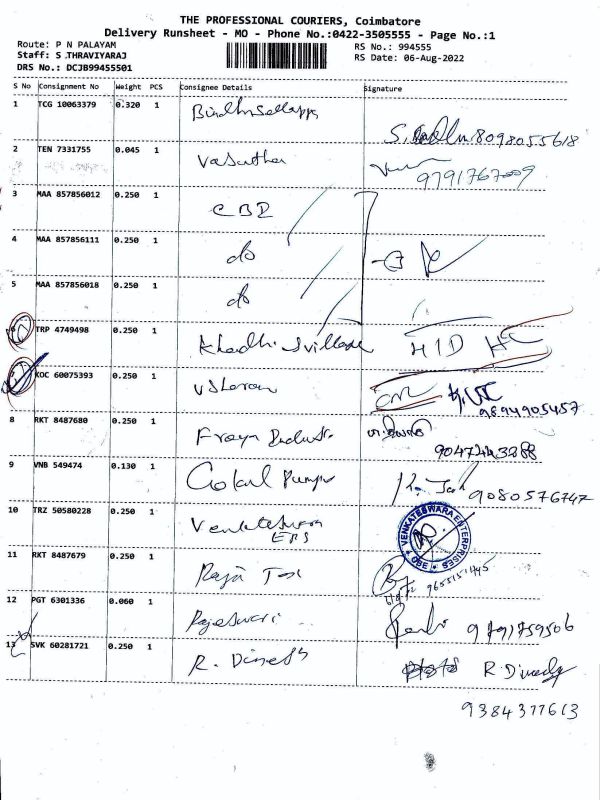 THE PROFESSIONAL COURIERS, Coimbatore
Delivery Runsheet - MO - Phone No.:0422-3505555 - Page No.:1
Route: P N PALAYAM
Staff: S THRAVIYARAJ
DRS No.: DCJB99455501
RS No.: 994555
RS Date: 06-Aug-2022
S No Consignment No Weight PCS Consignee Details Signature
1 TCG 10063379 0.320 1
8098055618
2 TEN 7331755 0.045 1 Vasutha
9791767009
3 MAA 857856012 0.250 1 CBD
4 MAA 857856111 0.250 1 do
5 MAA 857856018 0.250 1 do
6 TRP 4749498 0.250 1 Khadhi
7 KOC 60075393 0.250 1
9894905457
8 RKT 8487680 0.250 1
9 VNB 549474 0.130 1 Gokul Pumps
9080576747
10 TRZ 50580228 0.250 1 Venkateswara
EPS
VENKATESWARA ENTERPRISES
11 RKT 8487679 0.250 1 Raja Tex
12 PGT 6301336 0.060 1 Rajeswari
9791759506
13 SVK 60281721 0.250 1 R. Dinesh
R Dinesh
9384377613